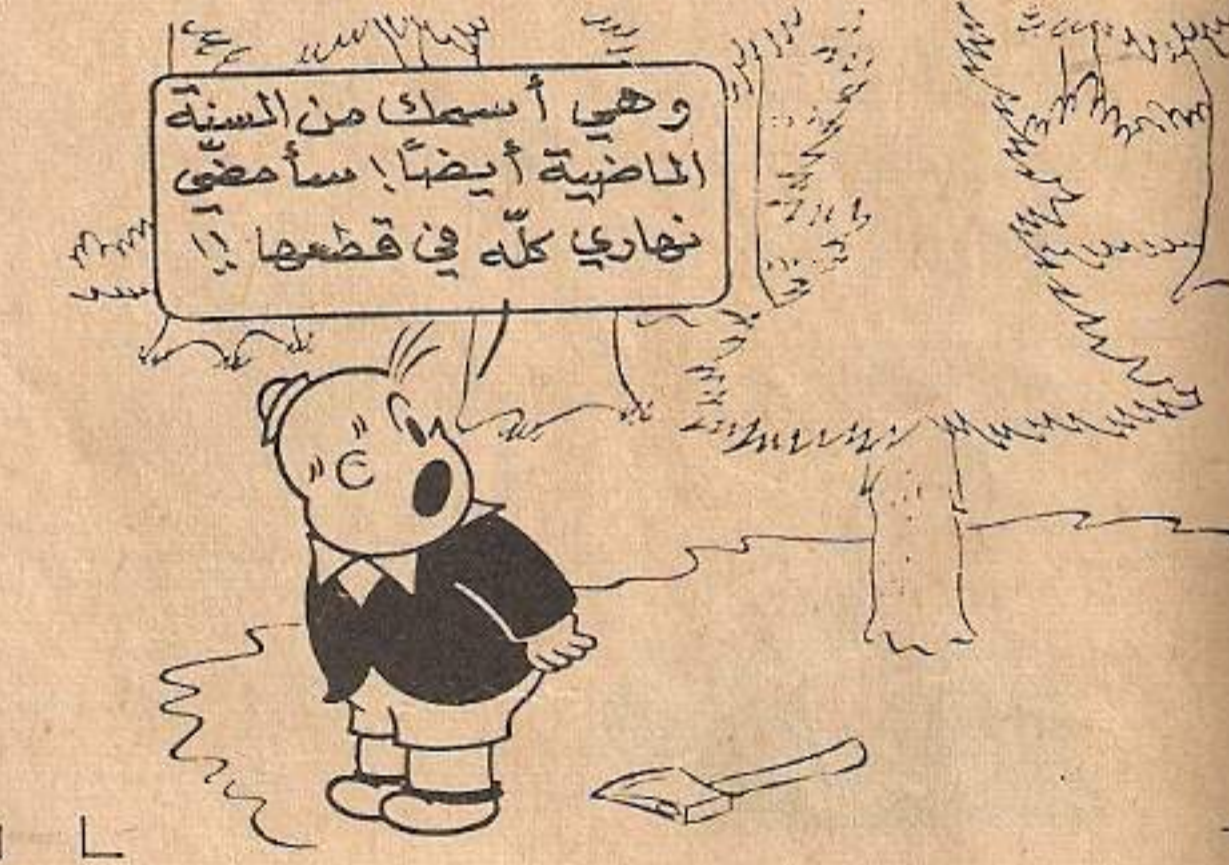 وهي أسمك من السنة
الماضية أيضًا! سأمضّي
نهاري كلّه في قطعها !!